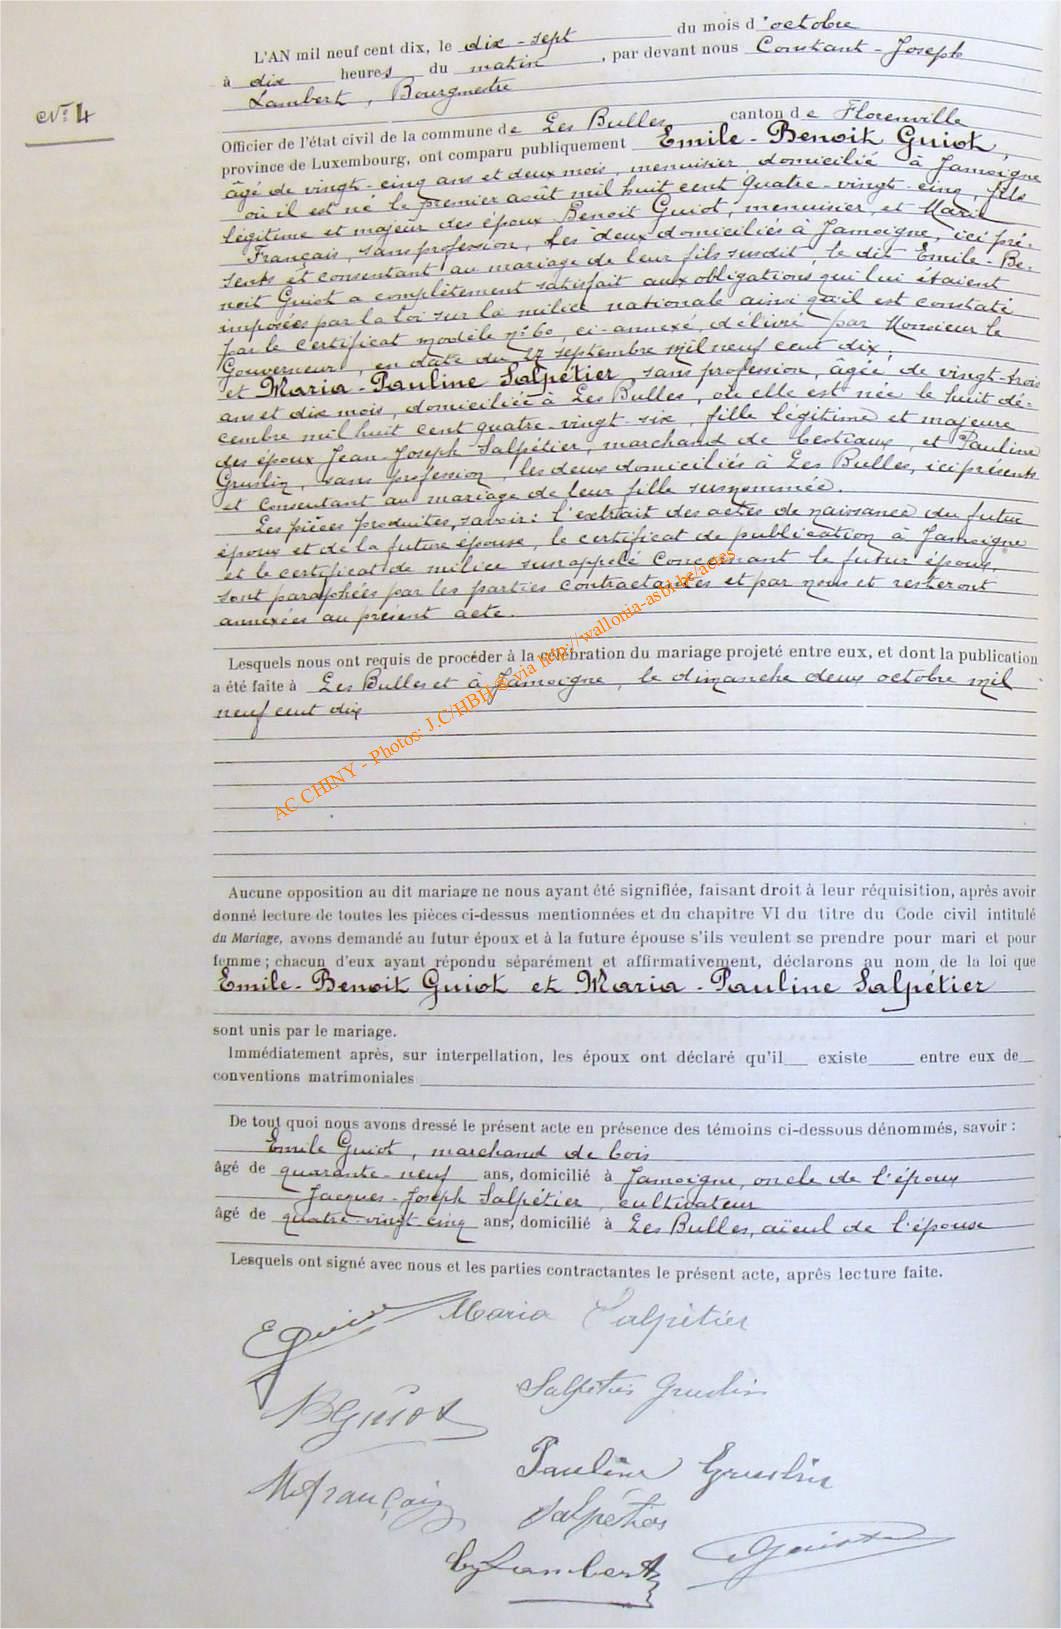 N° 4
L'AN mil neuf cent dix, le dix-sept du mois d'octobre
à dix heures du matin, par devant nous Constant-Joseph
Lambert, Bourgmestre
Officier de l'état civil de la commune de Les Bulles canton de Florenville
province de Luxembourg, ont comparu publiquement Emile-Benoit Guiot,
âgé de vingt-cinq ans et deux mois, menuisier, domicilié à Jamoigne
où il est né le premier août mil huit cent quatre-vingt-cinq, fils
légitime et majeur des époux Benoit Guiot, menuisier, et Marie
Français, sans profession, les deux domiciliés à Jamoigne, ici pré-
sents et consentant au mariage de leur fils susdit, le dit Emile-Be-
noit Guiot a complètement satisfait aux obligations qui lui étaient
imposées par la loi sur la milice nationale ainsi qu'il est constaté
par le certificat modèle n° 60, ci-annexé, délivré par Monsieur le
Gouverneur, en date du 27 septembre mil neuf cent dix,
et Maria-Pauline Salpétier, sans profession, âgée de vingt-trois
ans et dix mois, domiciliée à Les Bulles, où elle est née le huit dé-
cembre mil huit cent quatre-vingt-six, fille légitime et majeure
des époux Jean-Joseph Salpétier, marchand de bestiaux, et Pauline
Gruslin, sans profession, les deux domiciliés à Les Bulles, ici présents
et consentant au mariage de leur fille susnommée.
Les pièces produites, savoir: l'extrait des actes de naissance du futur
époux et de la future épouse, le certificat de publication à Jamoigne
et le certificat de milice susrappelé concernant le futur époux,
sont paraphées par les parties contractantes et par nous et resteront
annexées au présent acte.
Lesquels nous ont requis de procéder à la célébration du mariage projeté entre eux, et dont la publication
a été faite à Les Bulles et à Jamoigne, le dimanche deux octobre mil
neuf cent dix
AC CHINY - Photos: J.C/HBH © via http://wallonia-asbl.be/actes
Aucune opposition au dit mariage ne nous ayant été signifiée, faisant droit à leur réquisition, après avoir
donné lecture de toutes les pièces ci-dessus mentionnées et du chapitre VI du titre du Code civil intitulé
du Mariage, avons demandé au futur époux et à la future épouse s'ils veulent se prendre pour mari et pour
femme; chacun d'eux ayant répondu séparément et affirmativement, déclarons au nom de la loi que
Emile-Benoit Guiot et Maria-Pauline Salpétier
sont unis par le mariage.
Immédiatement après, sur interpellation, les époux ont déclaré qu'il existe entre eux de
conventions matrimoniales
De tout quoi nous avons dressé le présent acte en présence des témoins ci-dessous dénommés, savoir:
Emile Guiot, marchand de bois
âgé de quarante-neuf ans, domicilié à Jamoigne, oncle de l'époux
Jacques-Joseph Salpétier, cultivateur
âgé de quatre-vingt cinq ans, domicilié à Les Bulles, aïeul de l'épouse
Lesquels ont signé avec nous et les parties contractantes le présent acte, après lecture faite.
E Guiot Maria Salpétier
Salpétier Gruslin
B Guiot
Pauline Gruslin
M Français
Salpétier
Lambert Guiot